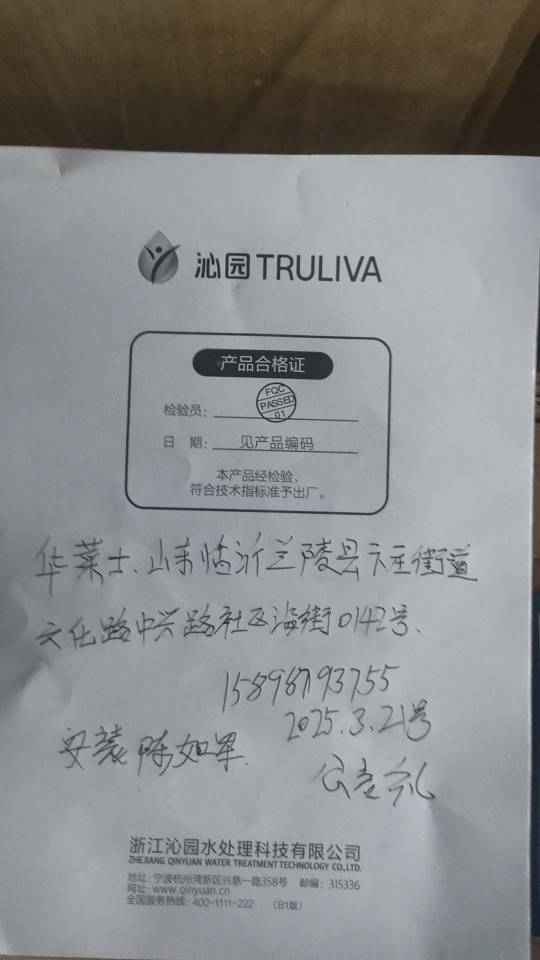 沁园 TRULIVA
产品合格证
检验员：
FQC
PASSED
01
日 期：见产品编码
本产品经检验，
符合技术指标准予出厂。
华莱士、山东临沂兰陵县卞庄街道
文化路中兴路社区沿街0142号、
15898793755
2025.3.21号
安装 陈如军.
浙江沁园水处理科技有限公司
ZHEJIANG QINYUAN WATER TREATMENT TECHNOLOGY CO.,LTD.
地址：宁波杭州湾新区兴慈一路358号 邮编：315336
网址：www.qinyuan.cn
全国服务热线：400-1111-222 （B1版）